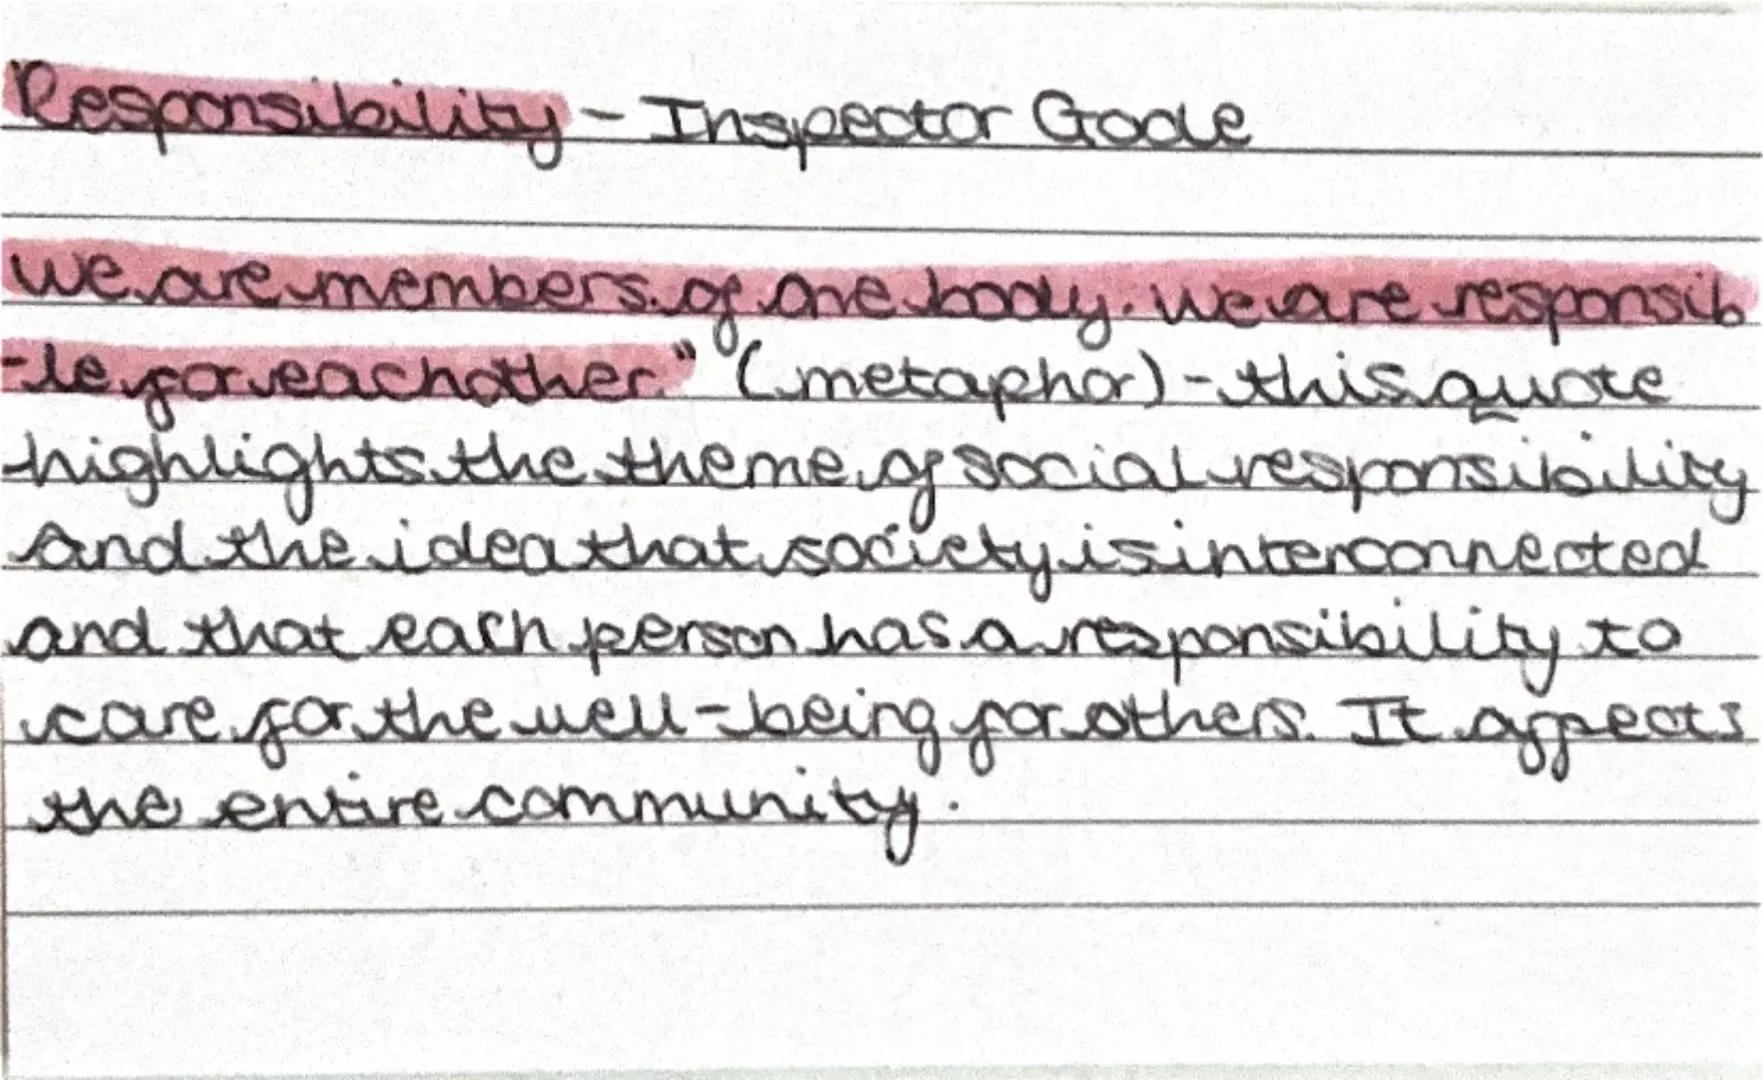 Responsibility - Inspector Goole
We are members of one body. We are responsib
-le for eachother." (metaphor) - this quote
highlights the theme of social responsibility
and the idea that society is interconnected
and that each person has a responsibility to
care for the well-being for others. It affects
the entire community.